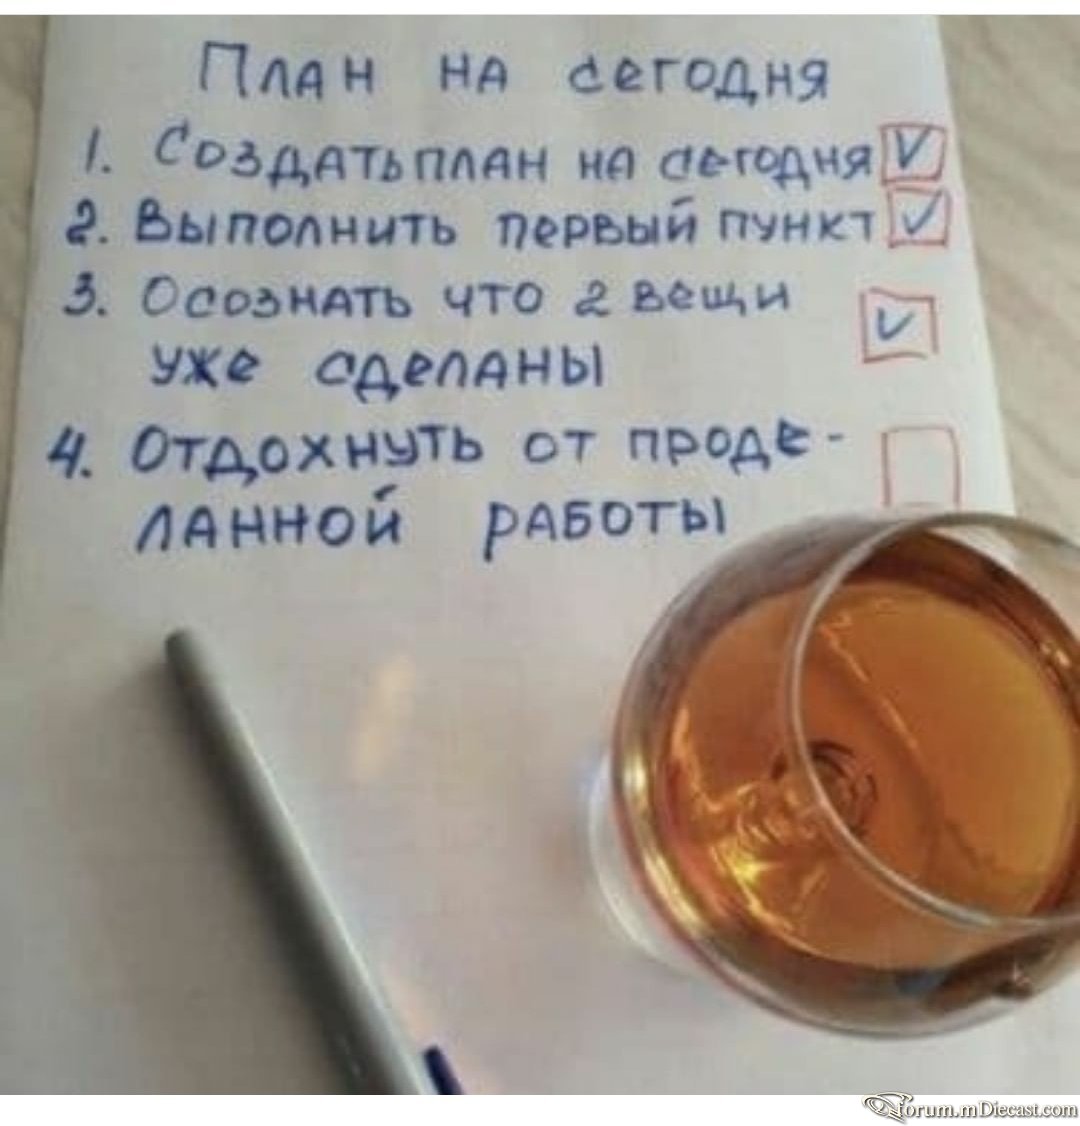 План на сегодня
1. Создать план на сегодня
2. Выполнить первый пункт
3. Осознать что 2 вещи
уже сделаны
4. Отдохнуть от проде-
ланной работы
forum.mDiecast.com